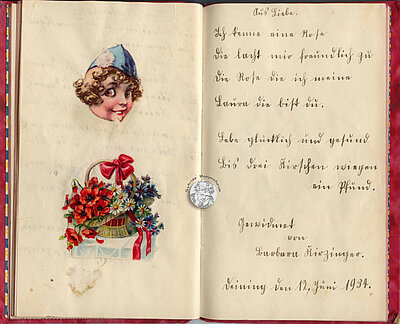 Aus Liebe.
Ich kenne eine Rose
Die lacht mir freundlich zu
Die Rose die ich meine
Laura die bist du.
Lebe glücklich und gesund
Bis drei Kirschen wiegen
ein Pfund.
Gewidmet
von
Barbara Kirzinger.
Deining den 12. Juni 1934.